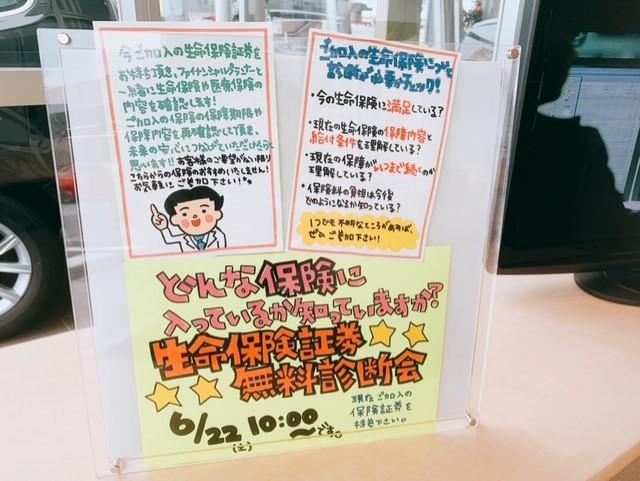 今ご加入の生命保険証券を
お持ち頂き、ファイナンシャルプランナーと
一緒に生命保険や医療保険の
内容を確認します!
ご加入の保険の保障期限や
保障内容を再確認して頂き、
未来の安心につなげていただけたらと
思います!! お客様のご要望がない限り
こちらからの保険のおすすめいたしません!
お気軽にご参加下さい!
ご加入の生命保険について
診断が必要かチェック!
・今の生命保険に満足している?
・現在の生命保険の保障内容と
給付条件を理解している?
・現在の保障がいつまで続くのか
理解している?
・保険料の負担は今後
どのようになるか知っている?
1つでも不明なところがあれば、
ぜひご参加下さい!
どんな保険に
入っているか知っていますか?
生命保険証券
無料診断会
6/22 10:00
(土) 〜です。
現在ご加入の
保険証券を
持参下さい。